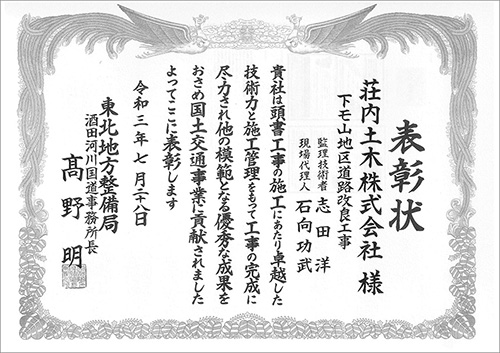 表彰状
荘内土木株式会社 様
下モ山地区道路改良工事
監理技術者 志田 洋
現場代理人 石向功武
貴社は頭書工事の施工にあたり卓越した
技術力と施工管理をもって工事の完成に
尽力され他の模範となる優秀な成果を
おさめ国土交通事業に貢献されました
よってここに表彰します
令和三年七月二十八日
東北地方整備局
酒田河川国道事務所長
髙野 明